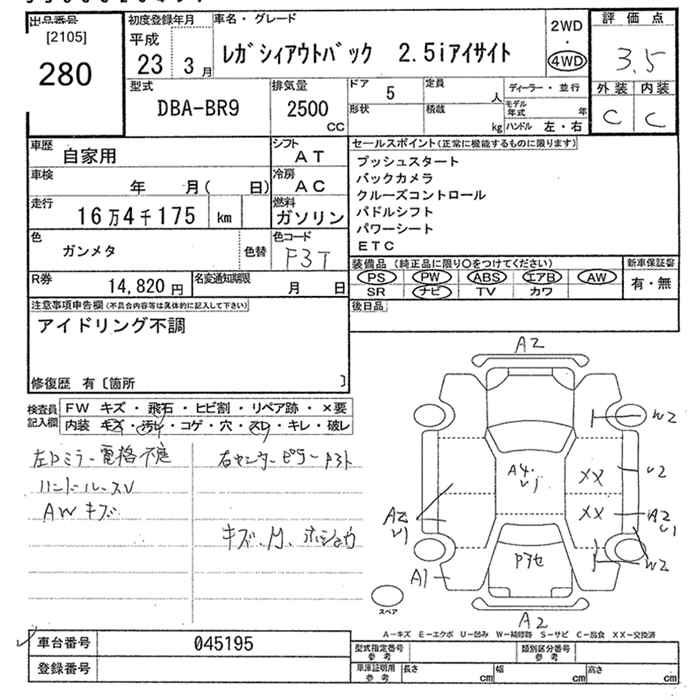 出品番号
[2105]
280
初度登録年月
平成
23年 3月
車名・グレード
レガシィアウトバック 2.5iアイサイト
2WD
・
4WD
評価点
3.5
外装 内装
C C
型式
DBA-BR9
排気量
2500
CC
ドア 5
定員 人
形状
積載 kg
ディーラー・並行
モデル年式 年
ハンドル 左・右
車歴
自家用
シフト
AT
車検 年 月( 日)
冷房
AC
走行
16万4千175 km
燃料
ガソリン
色
ガンメタ
色替
色コード
F3T
R券
14,820円
名変通知期限
月 日
セールスポイント(正常に機能するものに限ります)
プッシュスタート
バックカメラ
クルーズコントロール
パドルシフト
パワーシート
ETC
装備品(純正品に限り○をつけてください)
新車保証書
PS PW ABS エアB AW
SR ナビ TV カワ
有・無
後日品
注意事項申告欄(不具合内容等は具体的に記入して下さい)
アイドリング不調
修復歴 有〔箇所 〕
検査員記入欄
FW キズ・飛石・ヒビ割・リペア跡・×要
内装 キズ・汚レ・コゲ・穴・スレ・キレ・破レ
左Dミラー電格不良
ハンドルスレ
AWキズ
右センターピラー
キズ、
A2
W2
A4.
U1
XX
U2
XX
A2
U1
A2
U1
W2
A1
A2
スペア
A-キズ E-エクボ U-凹み W-補修跡 S-サビ C-腐食 XX-交換済
車台番号
045195
登録番号
型式指定番号
参考
類別区分番号
参考
車庫証明用
参考
長さ cm
幅 cm
高さ cm